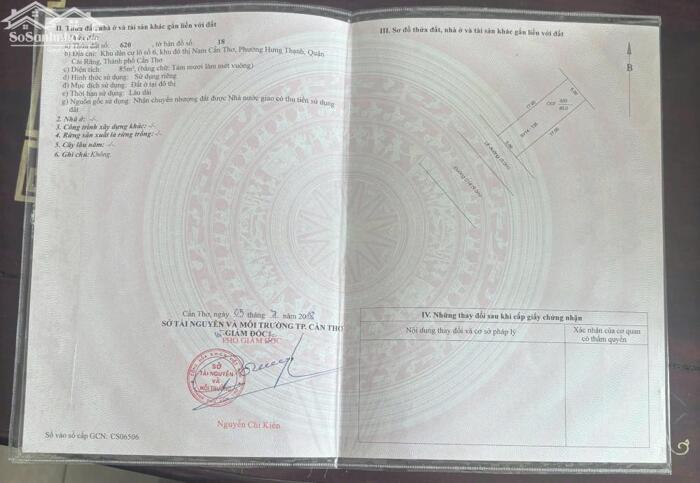 SoSanhNha
II. Thửa đất, nhà ở và tài sản khác gắn liền với đất
a) Thửa đất số: 620 tờ bản đồ số: 18
b) Địa chỉ: Khu dân cư lô số 6, khu đô thị Nam Cần Thơ, Phường Hưng Thạnh, Quận
Cái Răng, Thành phố Cần Thơ
c) Diện tích: 85m², (bằng chữ: Tám mươi lăm mét vuông)
d) Hình thức sử dụng: Sử dụng riêng
đ) Mục đích sử dụng: Đất ở tại đô thị
e) Thời hạn sử dụng: Lâu dài
g) Nguồn gốc sử dụng: Nhận chuyển nhượng đất được Nhà nước giao có thu tiền sử dụng
đất.
2. Nhà ở: -/-
3. Công trình xây dựng khác: -/-
4. Rừng sản xuất là rừng trồng: -/-
5. Cây lâu năm: -/-
6. Ghi chú: Không.
Cần Thơ, ngày 03 tháng
SỞ TÀI NGUYÊN VÀ MÔI TRƯỜNG TP. CẦN THƠ
GIÁM ĐỐC
PHÓ GIÁM ĐỐC
SỞ
TÀI NGUYÊN
VÀ
MÔI TRƯỜNG
Nguyễn Chí Kiên
Số vào sổ cấp GCN: CS06506
III. Sơ đồ thửa đất, nhà ở và tài sản khác gắn liền với đất
B
17.00
5.00
620
85.0
5.00
17.00
IV. Những thay đổi sau khi cấp giấy chứng nhận
Nội dung thay đổi và cơ sở pháp lý
Xác nhận của cơ quan
có thẩm quyền